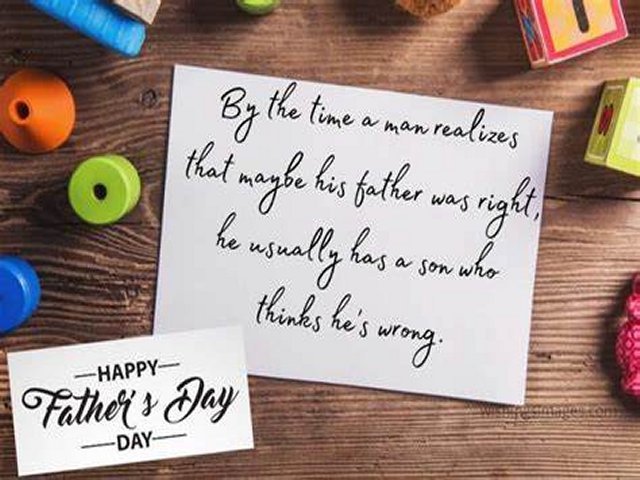 By the time a man realizes
that maybe his father was right,
he usually has a son who
thinks he's wrong.
HAPPY
Father's Day
DAY